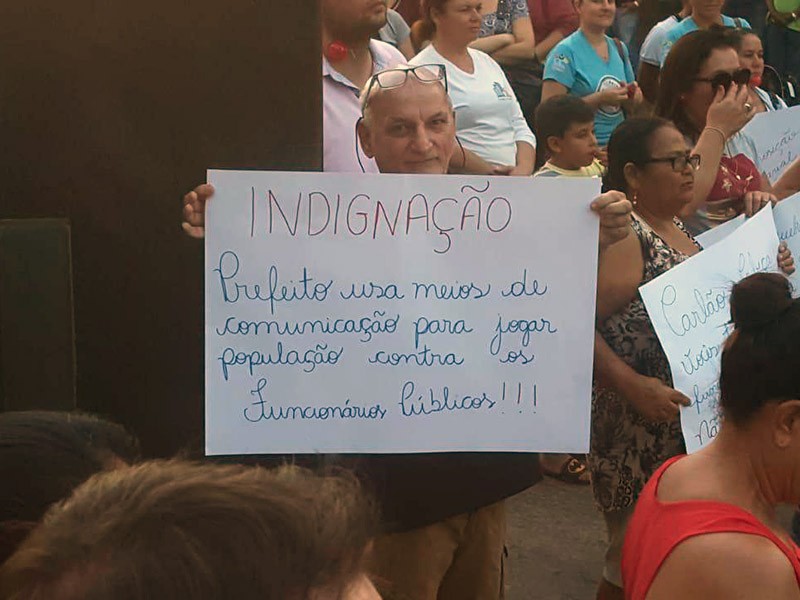 INDIGNAÇÃO
Prefeito usa meios de
comunicação para jogar
população contra os
Funcionários Públicos!!!
Carlão